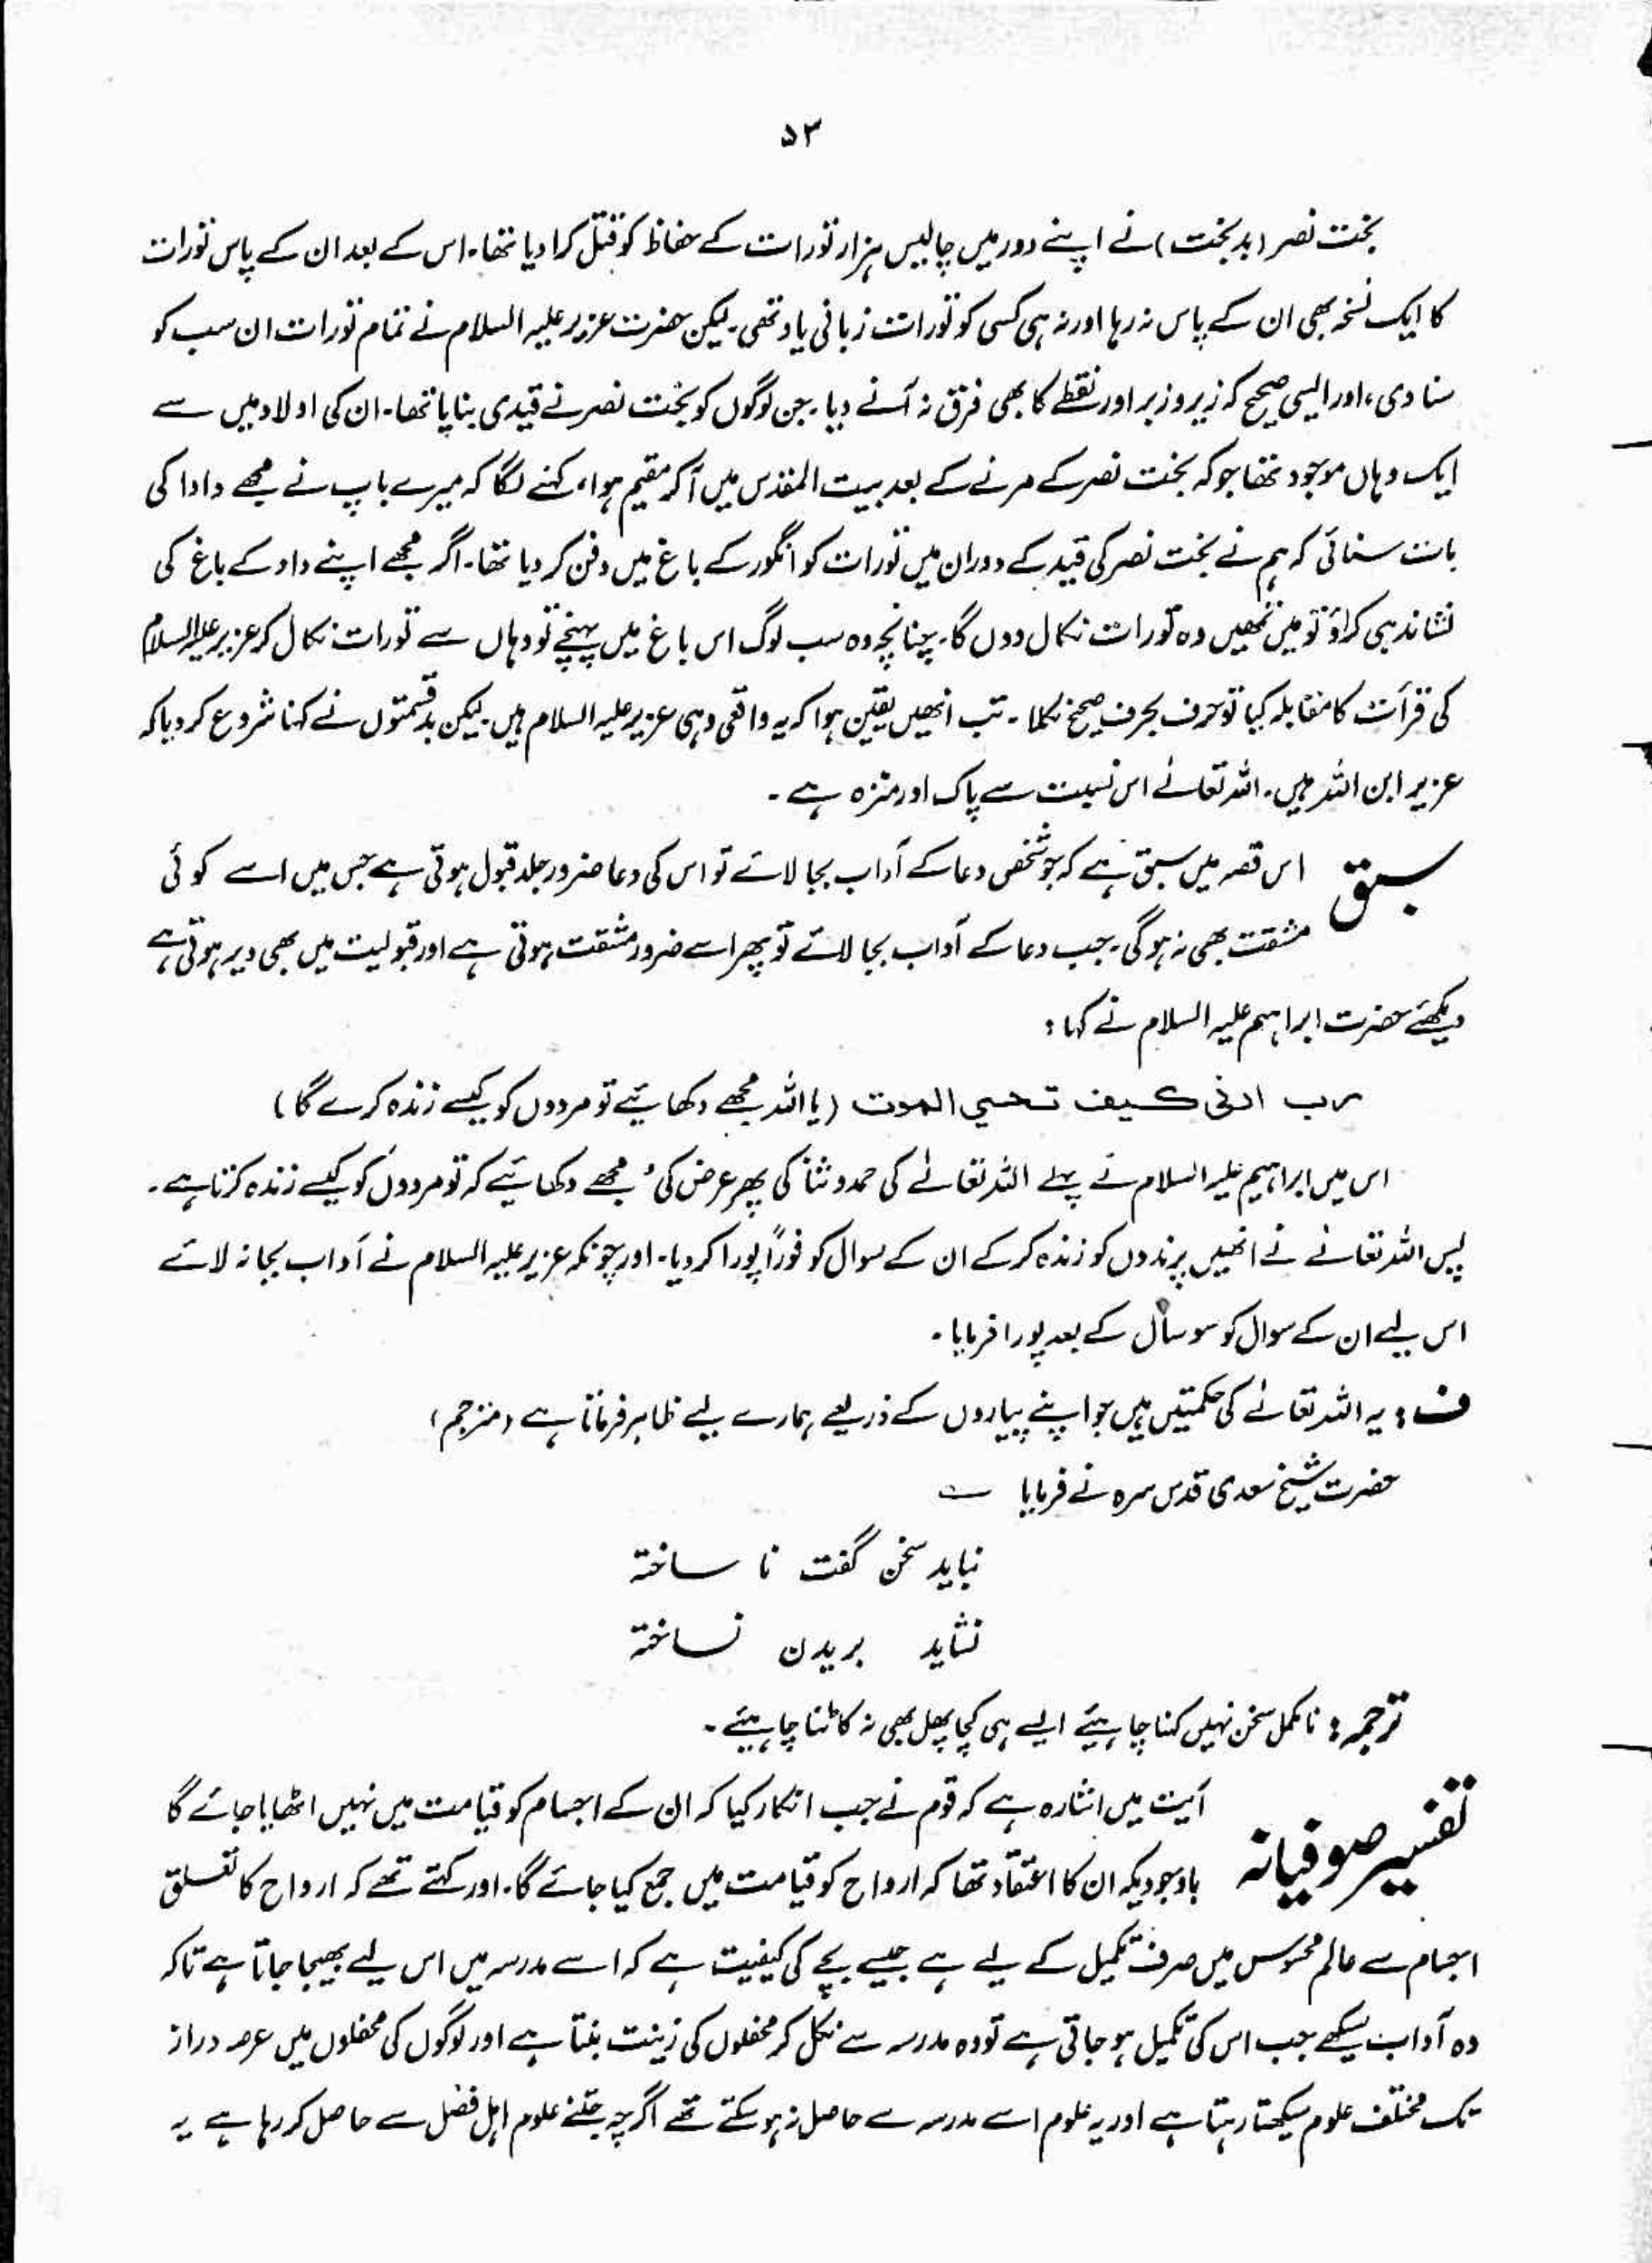 ۵۳
بخت نصر (بدبخت) نے اپنے دور میں چالیس ہزار تورات کے حفاظ کو قتل کرا دیا تھا۔ اس کے بعد ان کے پاس تورات
کا ایک نسخہ بھی ان کے پاس نہ رہا اور نہ ہی کسی کو تورات زبانی یاد تھی۔ لیکن حضرت عزیر علیہ السلام نے تمام تورات ان سب کو
سنا دی، اور ایسی صحیح کہ زیر و زبر اور نقطے کا بھی فرق نہ آنے دیا۔ جن لوگوں کو بخت نصر نے قیدی بنایا تھا۔ ان کی اولاد میں سے
ایک وہاں موجود تھا جو کہ بخت نصر کے مرنے کے بعد بیت المقدس میں آ کر مقیم ہوا، کہنے لگا کہ میرے باپ نے مجھے دادا کی
بات سنائی کہ ہم نے بخت نصر کی قید کے دوران میں تورات کو انگور کے باغ میں دفن کر دیا تھا۔ اگر مجھے اپنے داد کے باغ کی
نشاندہی کراؤ تو میں تمھیں وہ تورات نکال دوں گا۔ چنانچہ وہ سب لوگ اس باغ میں پہنچے تو وہاں سے تورات نکال کر عزیر علیہ السلام
کی قرأت کا مقابلہ کیا تو حرف بحرف صحیح نکلا۔ تب انھیں یقین ہوا کہ یہ واقعی وہی عزیر علیہ السلام ہیں۔ لیکن بدقسمتوں نے کہنا شروع کر دیا کہ
عزیر ابن اللہ ہیں۔ اللہ تعالےٰ اس نسبت سے پاک اور منزہ ہے۔
سبق اس قصہ میں سبق ہے کہ جو شخص دعا کے آداب بجا لائے تو اس کی دعا ضرور جلد قبول ہوتی ہے جس میں اسے کوئی
مشقت بھی نہ ہوگی۔ جب دعا کے آداب بجا لائے تو پھر اسے ضرور مشقت ہوتی ہے اور قبولیت میں بھی دیر ہوتی ہے
دیکھئے حضرت ابراہیم علیہ السلام نے کہا :
رب ارنی کیف تحیی الموت (یا اللہ مجھے دکھائیے تو مردوں کو کیسے زندہ کرے گا)
اس میں ابراہیم علیہ السلام نے پہلے اللہ تعالےٰ کی حمد و ثنا کی پھر عرض کی مجھے دکھائیے کہ تو مردوں کو کیسے زندہ کرتا ہے۔
پس اللہ تعالےٰ نے انھیں پرندوں کو زندہ کر کے ان کے سوال کو فوراً پورا کر دیا۔ اور چونکہ عزیر علیہ السلام نے آداب بجا نہ لائے
اس لیے ان کے سوال کو سو سال کے بعد پورا فرمایا۔
ف : یہ اللہ تعالےٰ کی حکمتیں ہیں جو اپنے پیاروں کے ذریعے ہمارے لیے ظاہر فرماتا ہے (مترجم)
حضرت شیخ سعدی قدس سرہ نے فرمایا ؎
نباید سخن گفت نا ساختہ
نشاید بریدن نساختہ
ترجمہ : نامکمل سخن نہیں کہنا چاہیئے ایسے ہی کچا پھل بھی نہ کاٹنا چاہیئے۔
تفسیر صوفیانہ آیت میں اشارہ ہے کہ قوم نے جب انکار کیا کہ ان کے اجسام کو قیامت میں نہیں اٹھایا جائے گا
باوجودیکہ ان کا اعتقاد تھا کہ ارواح کو قیامت میں جمع کیا جائے گا۔ اور کہتے تھے کہ ارواح کا تعلق
اجسام سے عالم محسوس میں صرف تکمیل کے لیے ہے جیسے بچے کی کیفیت ہے کہ اسے مدرسہ میں اس لیے بھیجا جاتا ہے تاکہ
وہ آداب سیکھے جب اس کی تکمیل ہو جاتی ہے تو وہ مدرسہ سے نکل کر محفلوں کی زینت بنتا ہے اور لوگوں کی محفلوں میں عرصہ دراز
تک مختلف علوم سیکھتا رہتا ہے اور یہ علوم اسے مدرسہ سے حاصل نہ ہو سکتے تھے اگرچہ جتنے علوم اہل فضل سے حاصل کر رہا ہے یہ